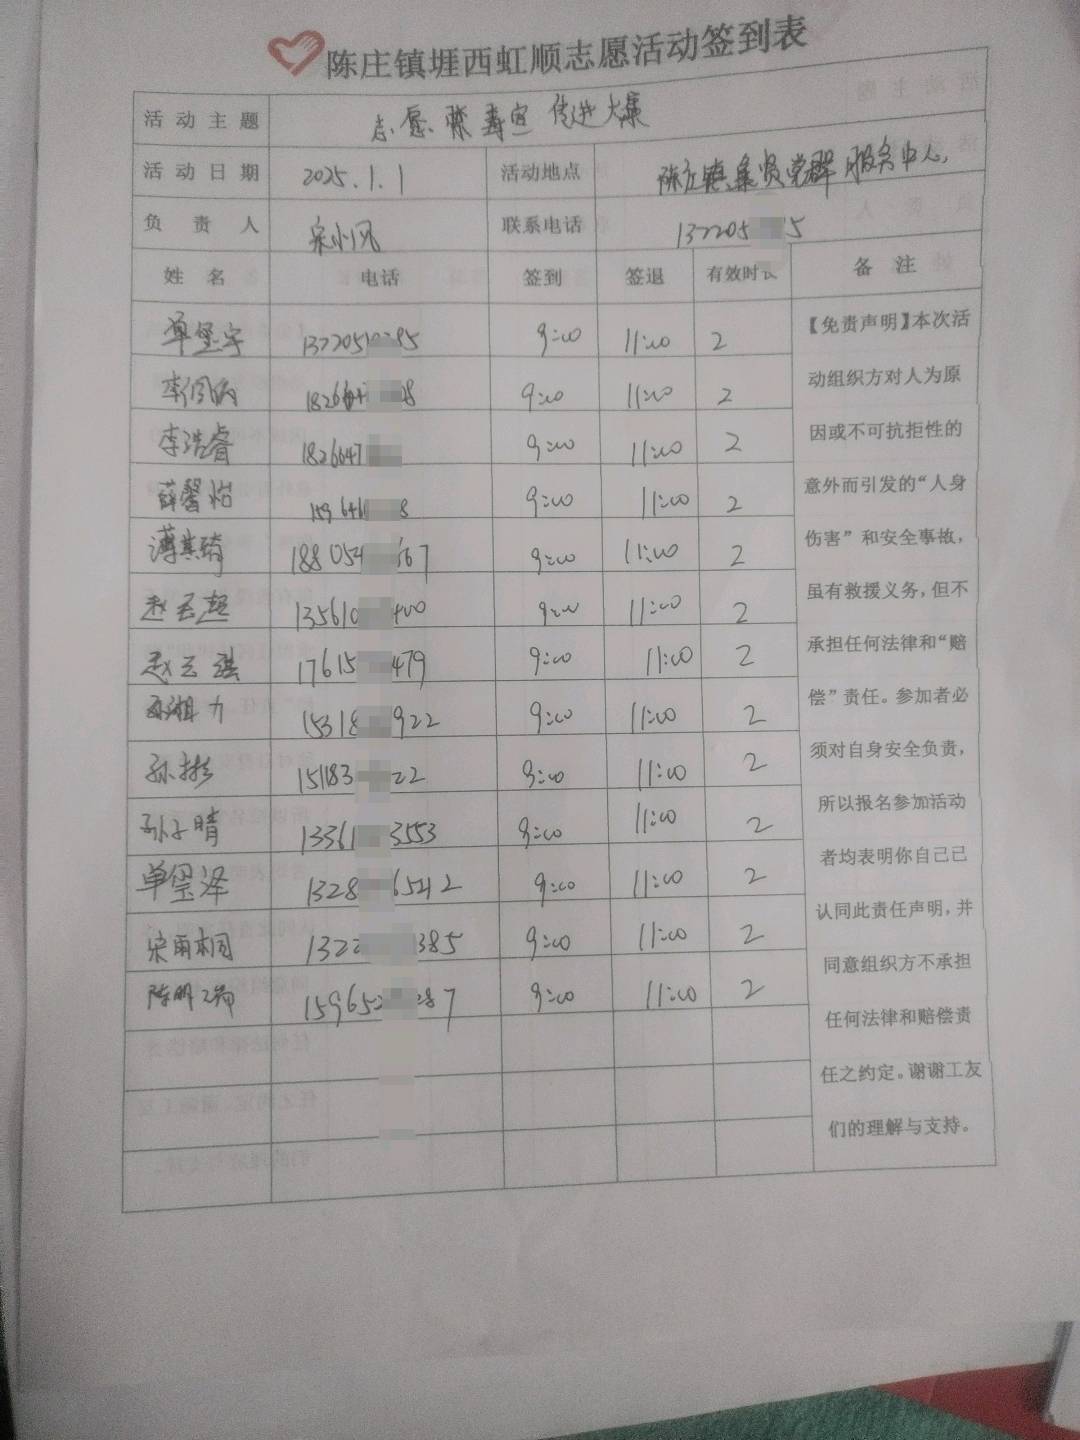 陈庄镇堐西虹顺志愿活动签到表
活动主题 志愿 宣传进大集
活动日期 2025.1.1 活动地点 陈庄镇集贤党群服务中心
负责人 宋小风 联系电话 137205 5
姓名 电话 签到 签退 有效时长 备注
单玺宇 1322051 85 9:00 11:00 2
182664 8 9:00 11:00 2
李浩睿 1826647 9:00 11:00 2
薛馨怡 159646 8 9:00 11:00 2
薄其琦 188054 67 9:00 11:00 2
赵云超 135610 400 9:00 11:00 2
赵云琪 17615 479 9:00 11:00 2
力 15318 922 9:00 11:00 2
孙彬 15183 22 9:00 11:00 2
孙子晴 13361 3553 9:00 11:00 2
单玺泽 1328 6542 9:00 11:00 2
宋雨桐 1322 385 9:00 11:00 2
陈明 15965 87 9:00 11:00 2
【免责声明】本次活
动组织方对人为原
因或不可抗拒性的
意外而引发的“人身
伤害”和安全事故,
虽有救援义务,但不
承担任何法律和“赔
偿”责任。参加者必
须对自身安全负责,
所以报名参加活动
者均表明你自己已
认同此责任声明,并
同意组织方不承担
任何法律和赔偿责
任之约定。谢谢工友
们的理解与支持。